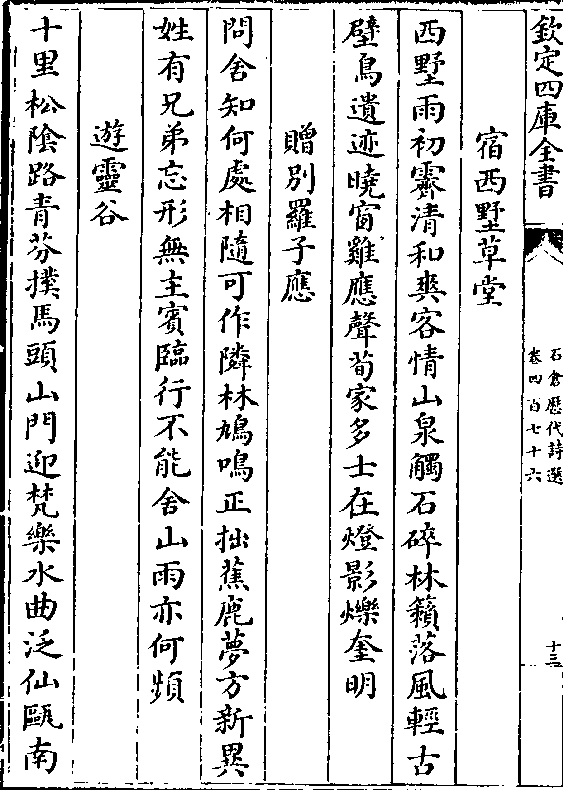 欽定四庫全書
石倉歷代詩選
卷四百七十六
十三
宿西墅草堂
西墅雨初霽清和爽客情山泉觸石碎林籟落風輕古
壁鳥遺迹曉窗雞應聲荀家多士在燈影爍奎明
贈別羅子應
問舍知何處相隨可作隣林鳩鳴正拙蕉鹿夢方新異
姓有兄弟忘形無主賓臨行不能舍山雨亦何頻
遊靈谷
十里松陰路青芬撲馬頭山門迎梵樂水曲泛仙甌南